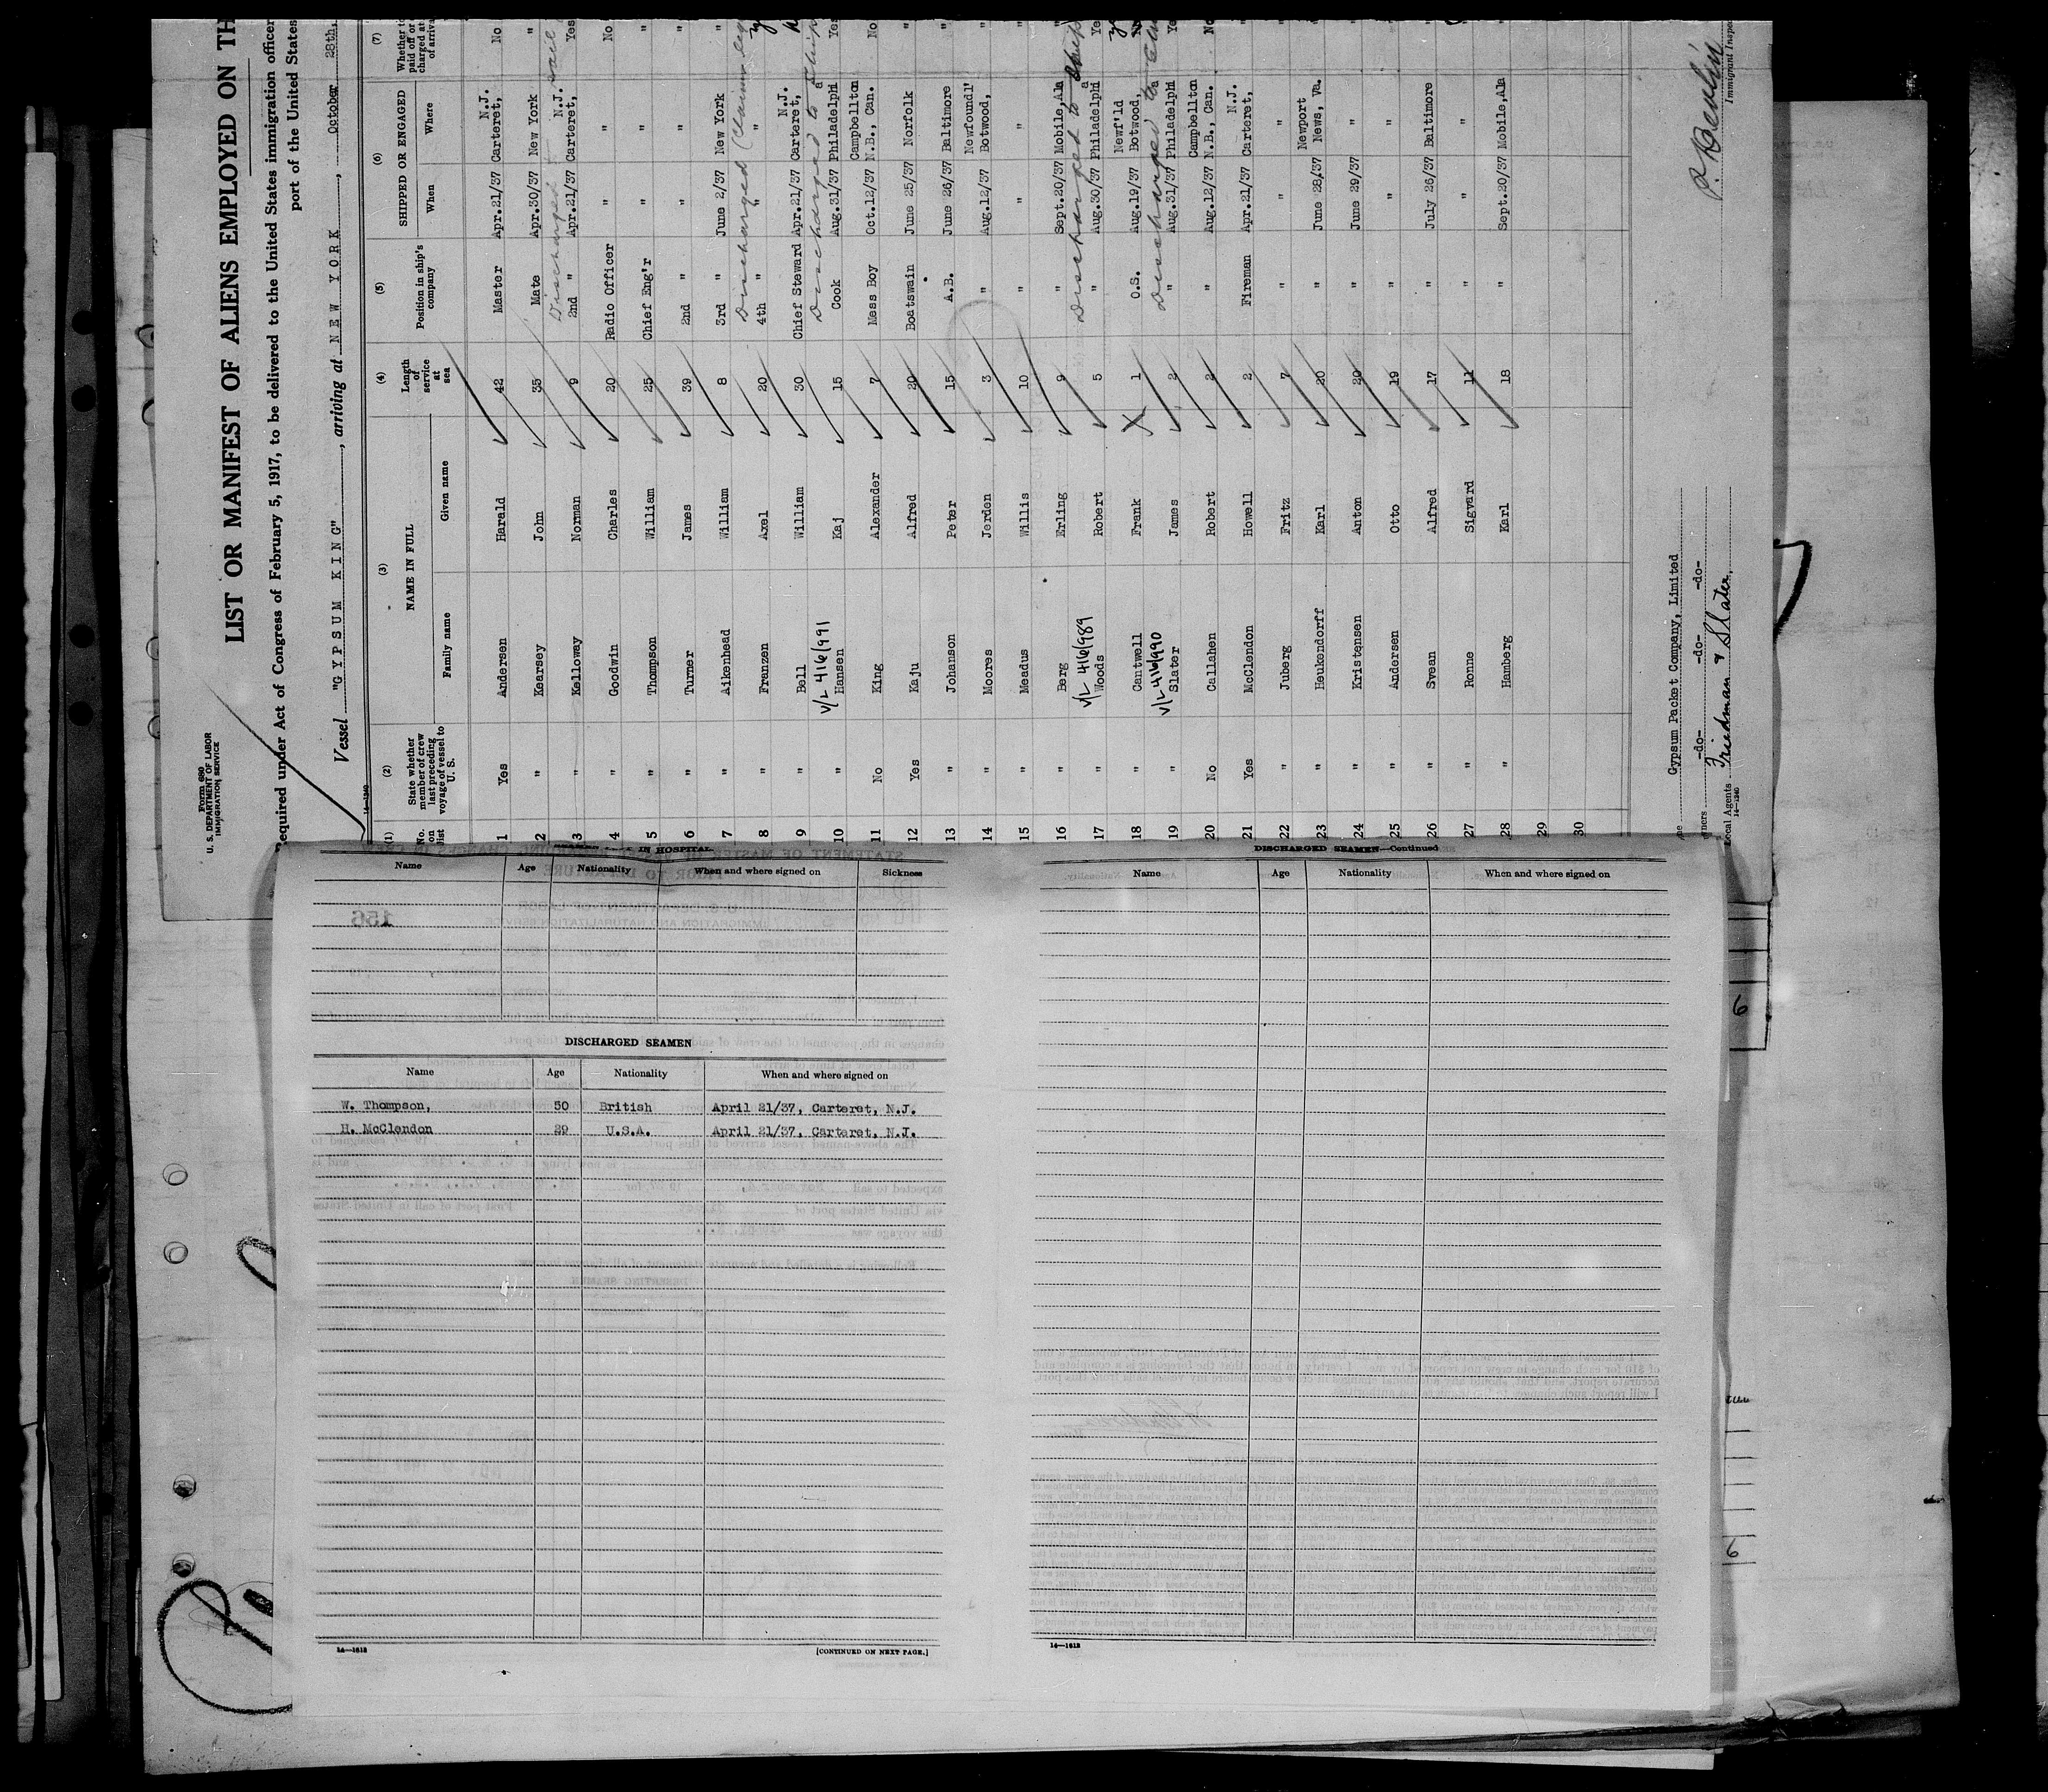 Form 680
U. S. DEPARTMENT OF LABOR
IMMIGRATION SERVICE
LIST OR MANIFEST OF ALIENS EMPLOYED ON TH
Required under Act of Congress of February 5, 1917, to be delivered to the United States immigration officer
port of the United States
Vessel "GYPSUM KING", arriving at NEW YORK, October 28th,
14—1240
(1) (2) (3) (4) (5) (6) (7)
No. on list State whether member of crew last preceding voyage of vessel to U. S. NAME IN FULL Length of service at sea Position in ship's company SHIPPED OR ENGAGED Whether to paid off or charged at of arrival
Family name Given name When Where
1 Yes Andersen Harald 42 Master Apr.21/37 Carteret, N.J. No
2 " Kearsey John 35 Mate Apr.30/37 New York "
Discharged
3 " Kelloway Norman 9 2nd " Apr.21/37 Carteret, N.J. Yes
4 " Goodwin Charles 20 Radio Officer " " No
5 " Thompson William 25 Chief Eng'r " " "
6 " Turner James 39 2nd " " " "
7 " Aikenhead William 8 3rd " June 2/37 New York "
Discharged (Claim
8 " Franzen Axel 20 4th " " "
9 " Bell William 30 Chief Steward Apr.21/37 Carteret, N.J.
V/L 416/991 Discharged to Ship
10 " Hansen Kaj 15 Cook Aug.31/37 Philadelphia Yes
11 No King Alexander 7 Mess Boy Oct.12/37 Campbellton N.B., Can. No
12 Yes Kaju Alfred 20 Boatswain June 25/37 Norfolk "
13 " Johanson Peter 15 A.B. June 26/37 Baltimore "
14 " Moores Jerden 3 " Aug.12/37 Botwood, Newfoundl' "
15 " Meadus Willis 10 " " " "
16 " Berg Erling 9 " Sept.20/37 Mobile,Ala "
V/L 416/989 Discharged to Ship
17 " Woods Robert 5 " Aug.30/37 Philadelphia Ye
18 " Cantwell Frank 1 O.S. Aug.19/37 Botwood, Newf'ld No
V/L 416/990 Discharged to
19 " Slater James 2 " Aug.31/37 Philadelphia Ye
20 No Callahen Robert 2 " Aug.12/37 Campbellton N.B., Can. No
21 Yes McClendon Howell 2 Fireman Apr.21/37 Carteret, N.J. "
22 " Juberg Fritz 7 " " " "
23 " Heukendorff Karl 20 " June 28/37 Newport News, Va. "
24 " Kristensen Anton 20 " June 29/37 " "
25 " Andersen Otto 19 " " " "
26 " Svean Alfred 17 " July 26/37 Baltimore "
27 " Ronne Sigvard 11 " " " "
28 " Hamberg Karl 18 " Sept.20/37 Mobile,Ala "
29
30
Gypsum Packet Company, Limited
owners -do- -do- -do-
Local Agents Friedman & Slater,
14—1240
P. Devlin
Immigrant Inspec
SEAMEN IN HOSPITAL
Name Age Nationality When and where signed on Sickness
DISCHARGED SEAMEN
Name Age Nationality When and where signed on
W. Thompson, 50 British April 21/37, Carteret, N.J.
H. McClendon 29 U.S.A. April 21/37, Carteret, N.J.
14—1612 [CONTINUED ON NEXT PAGE.]
DISCHARGED SEAMEN—Continued
Name Age Nationality When and where signed on
14—1612
6
6